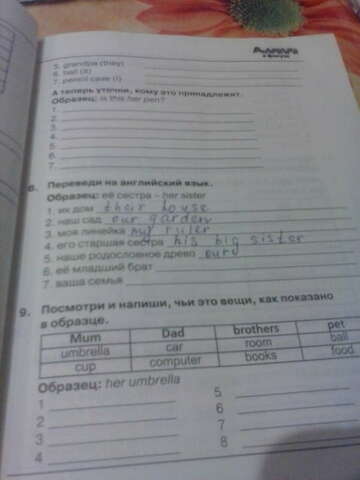 5. grandpa (they)
6. ball (it)
7. pencil case (I)
А теперь уточни, кому это принадлежит.
Образец: Is this her pen?
1.
2.
3.
4.
5.
6.
7.
8. Переведи на английский язык.
Образец: её сестра – her sister
1. их дом their house
2. наш сад our garden
3. моя линейка my ruler
4. его старшая сестра his big sister
5. наше родословное древо our
6. её младший брат
7. ваша семья
9. Посмотри и напиши, чьи это вещи, как показано
в образце.
Mum Dad brothers pet
umbrella car room ball
cup computer books food
Образец: her umbrella
1 5
2 6
3 7
4 8